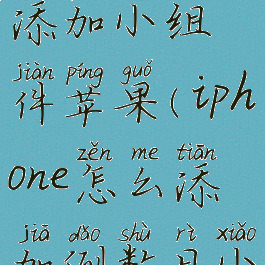 添加小组
jiàn píng guǒ
件苹果(iph
zěn me tiān
one怎么添
jiā dǎo shù rì xiǎo
加倒数日小